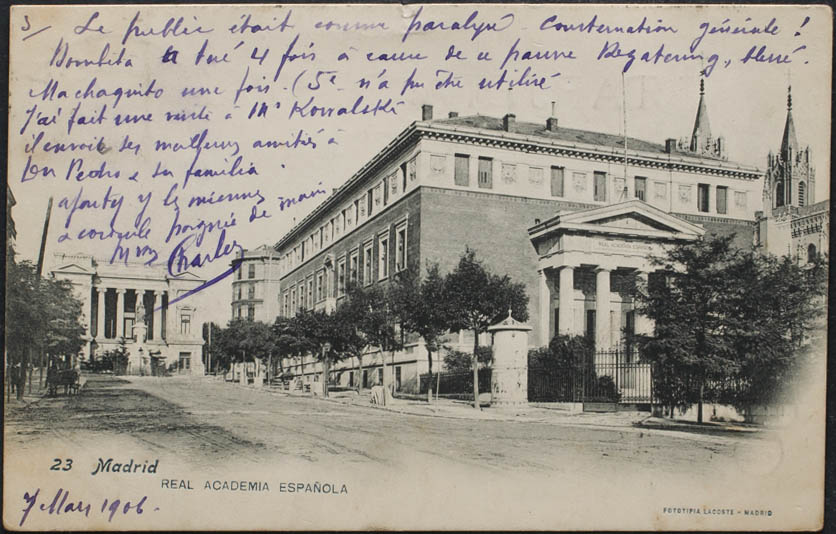 3/ Le public était comme paralysé - Consternation générale !
Bombita a tué 4 fois à cause de ce pauvre Regaterin, blessé.
Machaquito une fois. (5e n'a pu être utilisé
J'ai fait une visite à Mr Kowalski
il envoit ses meilleurs amitiés à
Don Pedro e su familia.
ajoutez y les miennes
& cordiale poignée de main
Charles
REAL ACADEMIA ESPAÑOLA
23 Madrid
REAL ACADEMIA ESPAÑOLA
7 Mars 1906.
FOTOTIPIA LACOSTE - MADRID